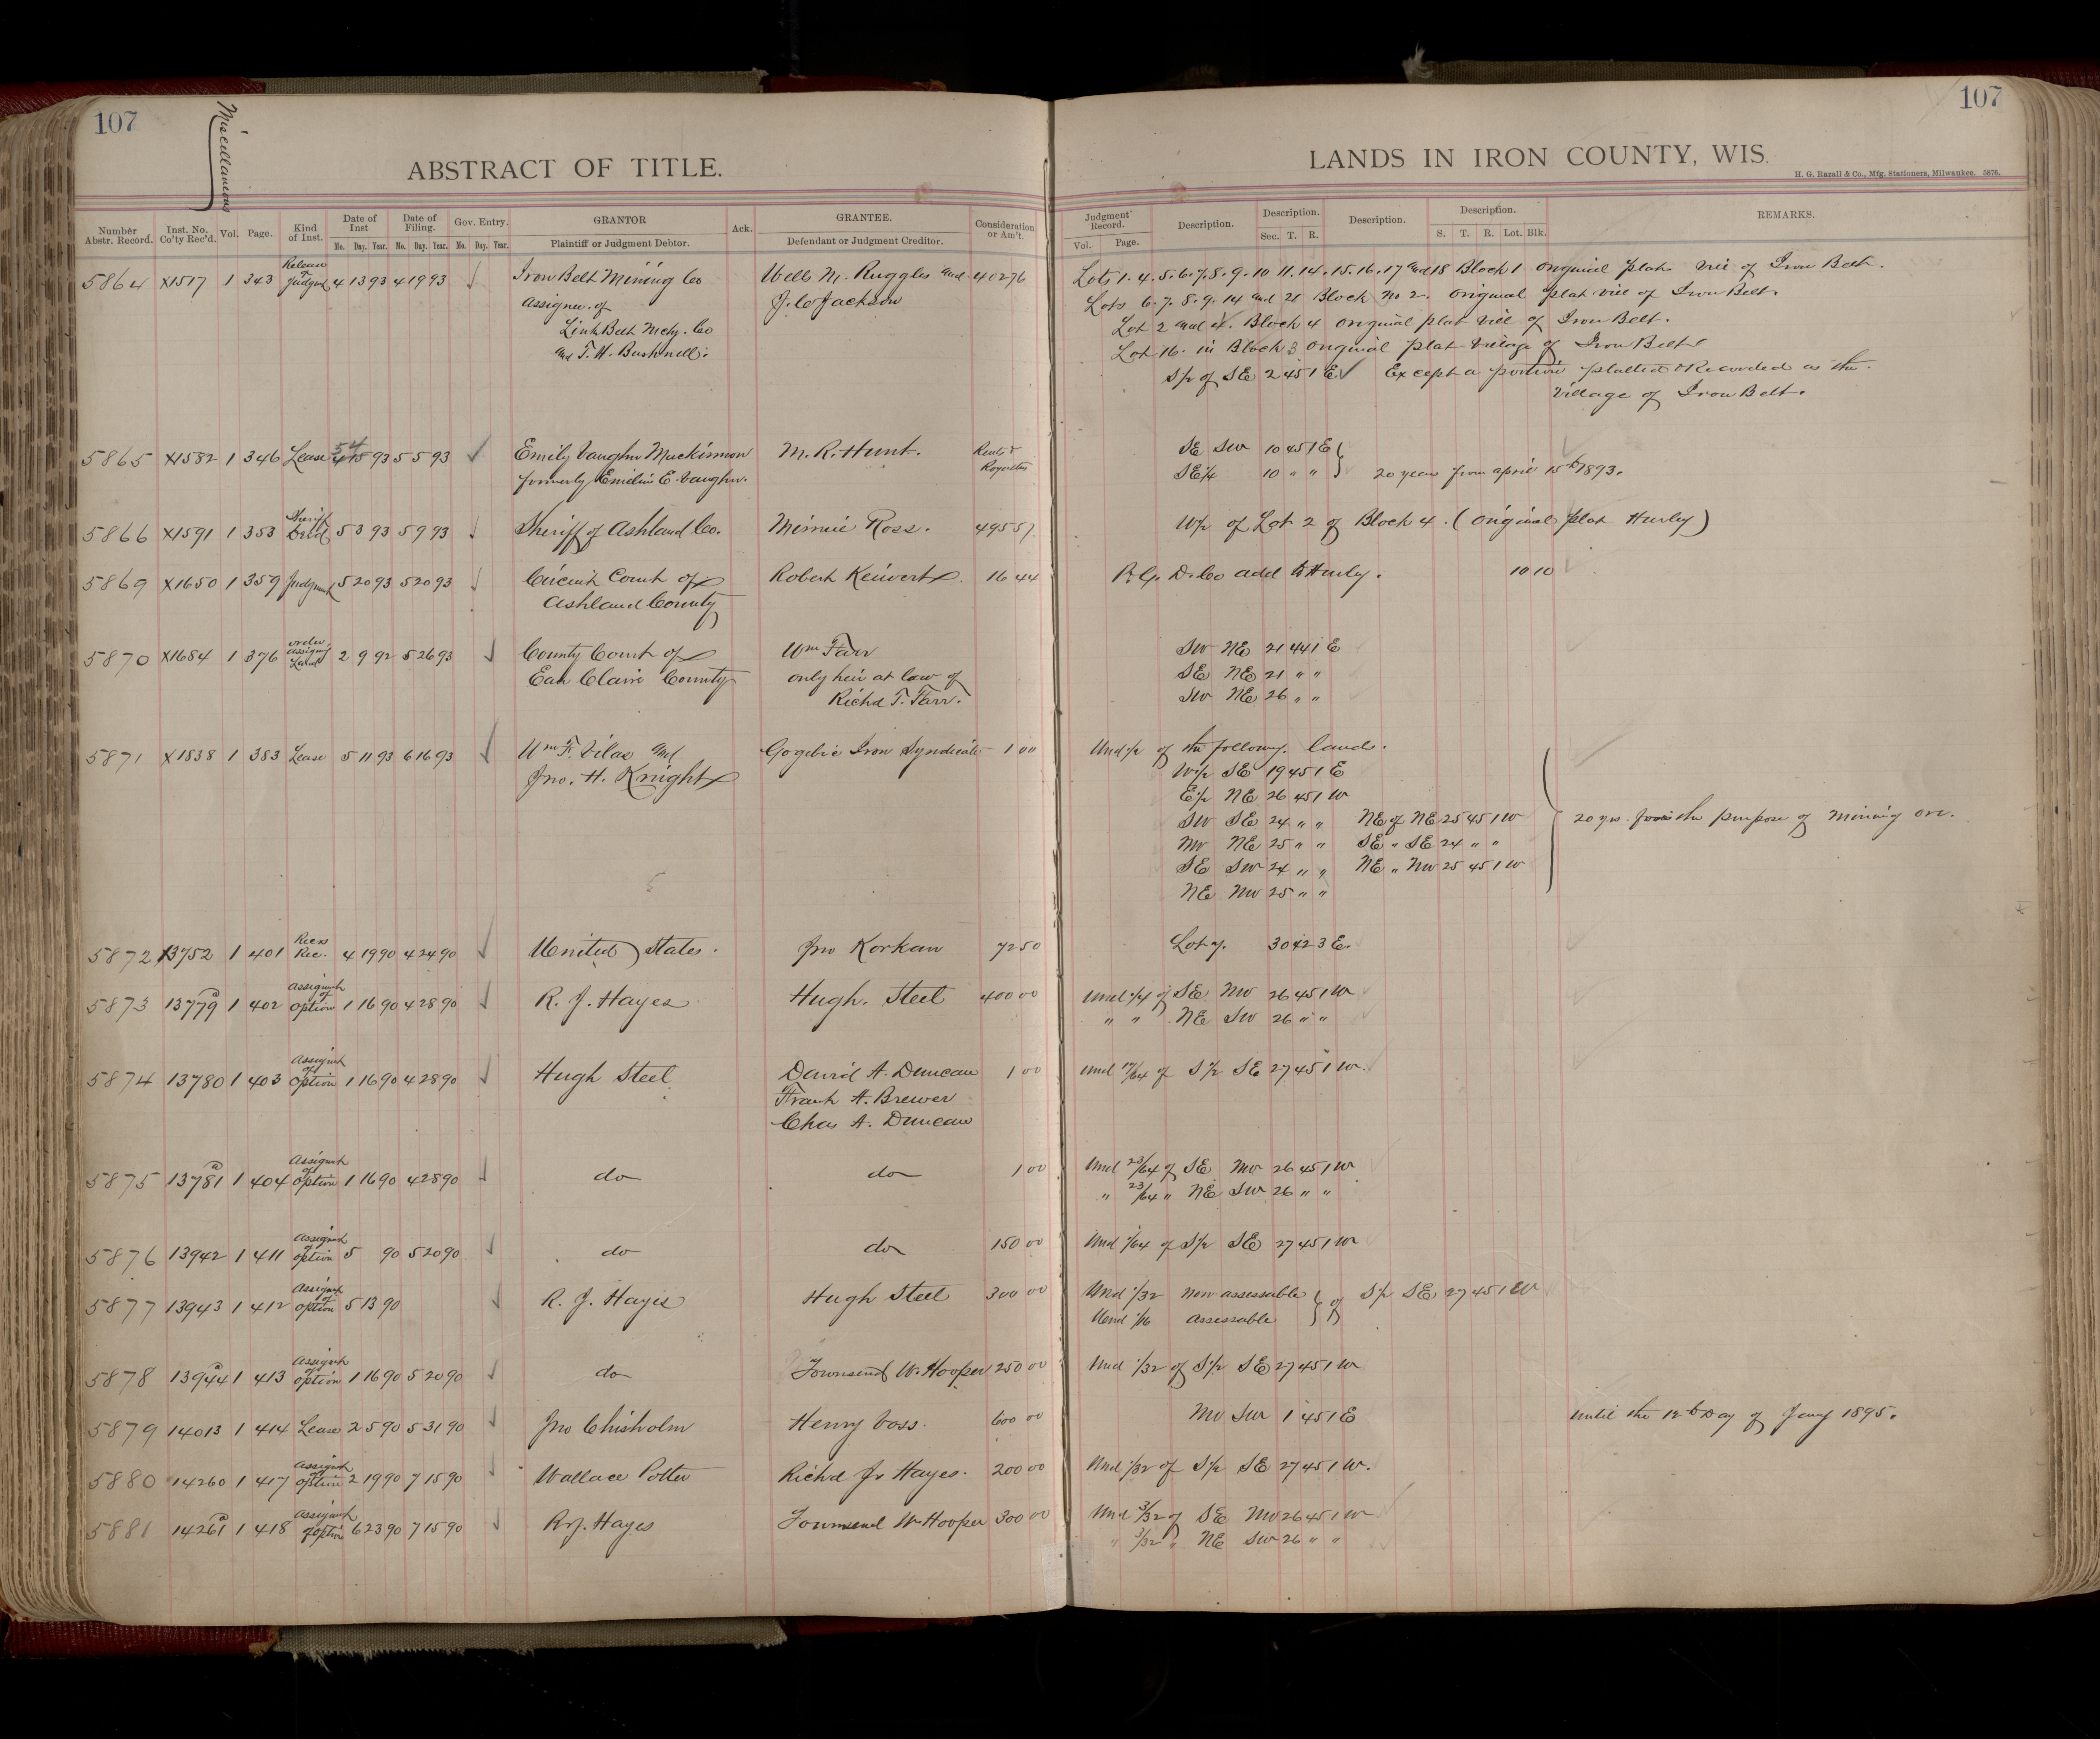 107
Miscellaneous
ABSTRACT OF TITLE.
Number Abstr. Record. Inst. No. Co'ty Rec'd. Vol. Page. Kind of Inst. Date of Inst Mo. Day. Year. Date of Filing. Mo. Day. Year. Gov. Entry. Mo. Day. Year. GRANTOR Plaintiff or Judgment Debtor. Ack. GRANTEE. Defendant or Judgment Creditor. Consideration or Am't.
107
LANDS IN IRON COUNTY, WIS.
H. G. Razall & Co., Mfg. Stationers, Milwaukee. 5876.
Judgment Record. Vol. Page. Description. Description. Sec. T. R. Description. Description. S. T. R. Lot. Blk. REMARKS.
5864 X1517 1 343 Release of Judgmt 4 13 93 4 19 93 Iron Belt Mining Co Wells M. Ruggles and 402 76 Lots 1. 4. 5. 6. 7. 8. 9. 10 11. 14. 15. 16. 17 and 18 Block 1 Original plat Vill of Iron Belt.
Assignee of J. C Jackson Lots 6. 7. 8. 9. 14 and 21 Block No 2. Original plat Vill of Iron Belt.
Link Belt Mchy. Co Lot 2 and 4. Block 4 Original plat Vill of Iron Belt.
and T. H. Bushnell. Lot 16. in Block 3 Original plat Village of Iron Belt
S½ of SE 2 45 1 E Except a portion platted & Recorded as the
Village of Iron Belt.
5865 X1582 1 346 Lease 5 4 93 5 5 93 Emily Vaughn Mackinnon M. R. Hunt. Rents & SE SW 10 45 1 E
formerly Emilie E. Vaughn. Royalties SE¼ 10 " " 20 years from april 15th 1893.
5866 X1591 1 353 Sheriff Deed 5 3 93 5 9 93 Sheriff of Ashland Co. Minnie Ross. 495 57 W½ of Lot 2 of Block 4. (Original plat Hurly)
5869 X1650 1 359 Judgment 5 20 93 5 20 93 Circuit Court of Robert 16 44 D. Co add to Hurly. 10 10
Ashland County
5870 X1684 1 376 order assigng Lands 2 9 92 5 26 93 County Court of Wm Farr SW NE 21 44 1 E
Eau Claire County only heir at law of SE NE 21 " "
Richd T. Farr. SW NE 26 " "
5871 X1838 1 383 Lease 5 11 93 6 16 93 Wm F. Vilas and Gogebic Iron Syndicate 1 00 Und ½ of the following lands.
Jno. H. Knight W½ SE 19 45 1 E
E½ NE 26 45 1 W
SW SE 24 " " NE of NE 25 45 1 W 20 yrs. for the purpose of mining ore.
NW NE 25 " " SE " SE 24 " "
SE SW 24 " " NE " NW 25 45 1 W
NE NW 25 " "
5
5872 13752 1 401 Recs Rec. 4 19 90 4 24 90 United States. Jno Korkan 72 50 Lot 7. 30 42 3 E.
5873 13779 1 402 Assignmt of option 1 16 90 4 28 90 R. J. Hayes Hugh. Steel 400 00 Und ¼ of SE NW 26 45 1 W
" " NE SW 26 " "
5874 13780 1 403 Assignmt of option 1 16 90 4 28 90 Hugh Steel David A. Duncan 1 00 Und 17/64 of S½ SE 27 45 1 W.
Frank A. Brewer
Chas A. Duncan
5875 13781 1 404 Assignmt of option 1 16 90 4 28 90 do do 1 00 Und 23/64 of SE NW 26 45 1 W
" 23/64 " NE SW 26 " "
5876 13942 1 411 Assignmt of option 5 90 5 20 90 do do 150 00 Und 1/64 of S½ SE 27 45 1 W
5877 13943 1 412 Assignmt of option 5 13 90 R. J. Hayes Hugh Steel 300 00 Und 1/32 non assessable of S½ SE 27 45 1 W
Und 1/16 assessable
5878 13944 1 413 Assignmt of option 1 16 90 5 20 90 do Townsend W. Hooper 250 00 Und 1/32 of S½ SE 27 45 1 W
5879 14013 1 414 Lease 2 5 90 5 31 90 Jno Chisholm Henry Voss. 600 00 NW SW 1 45 1 E until the 12th Day of Jany 1895.
5880 14260 1 417 Assignmt of option 2 19 90 7 15 90 Wallace Potter Richd Jr Hayes. 200 00 Und 1/32 of S½ SE 27 45 1 W.
5881 14261 1 418 Assignmt of option 6 23 90 7 15 90 R. J. Hayes Townsend W Hooper 300 00 Und 3/32 of SE NW 26 45 1 W
" 3/32 " NE SW 26 " "